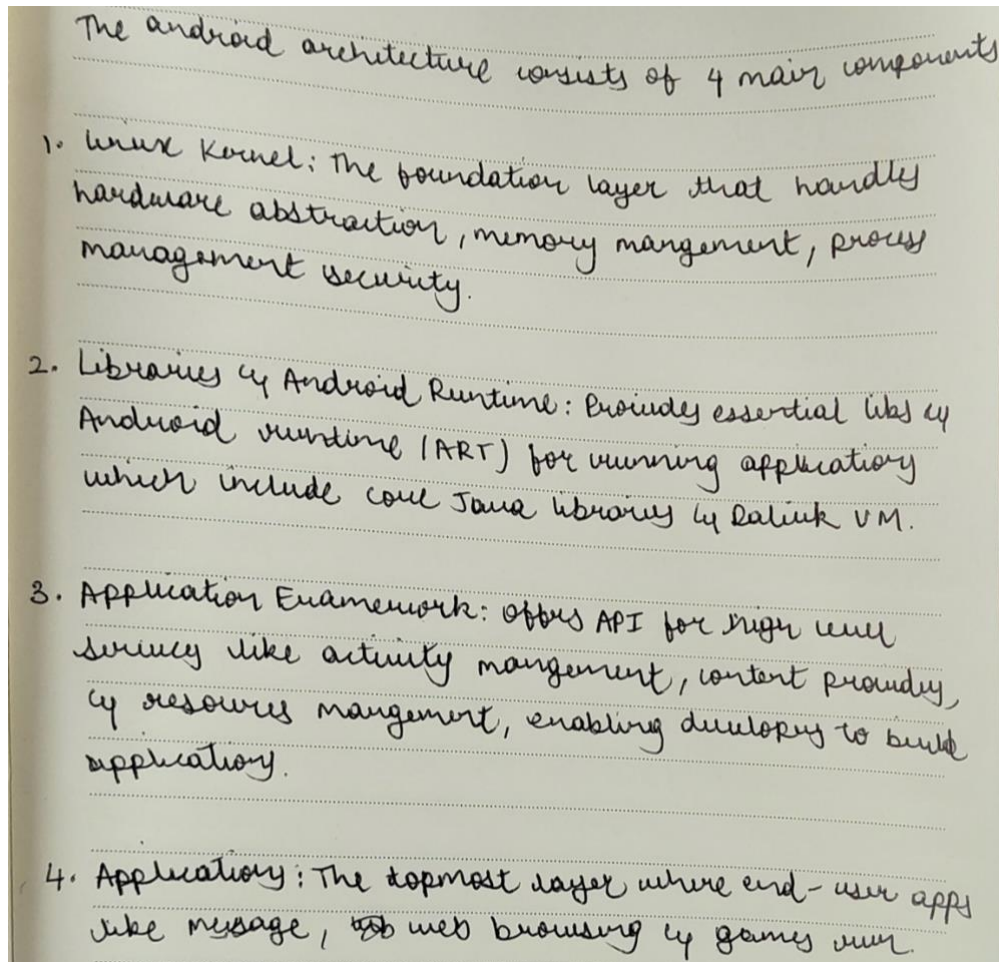 The android architecture consists of 4 main components
1. Linux Kernel: The foundation layer that handles
hardware abstraction, memory mangement, process
management security.
2. Libraries & Android Runtime: Provides essential libs &
Android runtime (ART) for running applications
which include core Java libraries & Dalvik VM.
3. Application Framework: Offers API for high level
services like activity mangement, content providers,
& resources mangement, enabling developers to build
applications.
4. Applications: The topmost layer where end-user apps
like message, web browsing & games run.